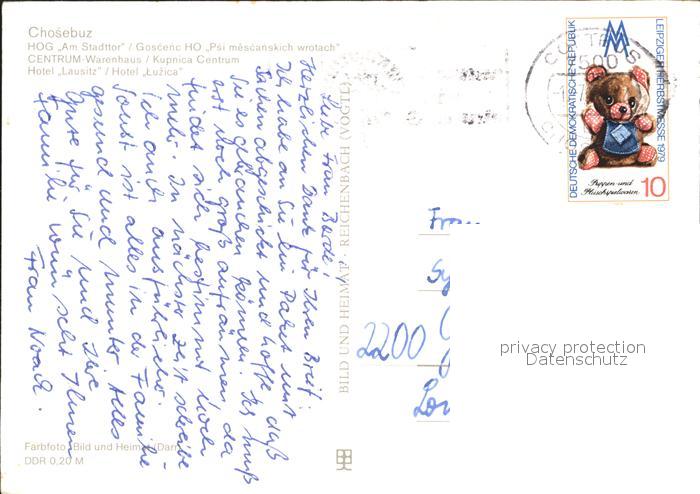 Chośebuz
HOG „Am Stadttor" / Gosćeńc HO „Pśi měsćanskich wrotach"
CENTRUM-Warenhaus / Kupnica Centrum
Hotel „Lausitz" / Hotel „Łužica"
Liebe Frau
Herzlichen Dank für Ihren Brief.
Ich habe an Sie ein Paket mit
Sachen abgeschickt und hoffe daß
Sie es gebrauchen können. Ich muß
erst noch groß aufräumen da
findet sich bestimmt noch
mehr. In nächster Zeit schreibe
ich auch ausführlicher.
Sonst ist alles in der Familie
gesund und munter. Alles
Gute für Sie und Ihre
Familie wünscht Ihnen
Frau Noack.
Farbfoto: Bild und Heimat
DDR 0,20 M
BILD UND HEIMAT · REICHENBACH (VOGTL)
COTTBUS
7500
DEUTSCHE DEMOKRATISCHE REPUBLIK
LEIPZIGER HERBSTMESSE 1979
Puppen und
Plüschspielwaren
10
2200
privacy protection
Datenschutz